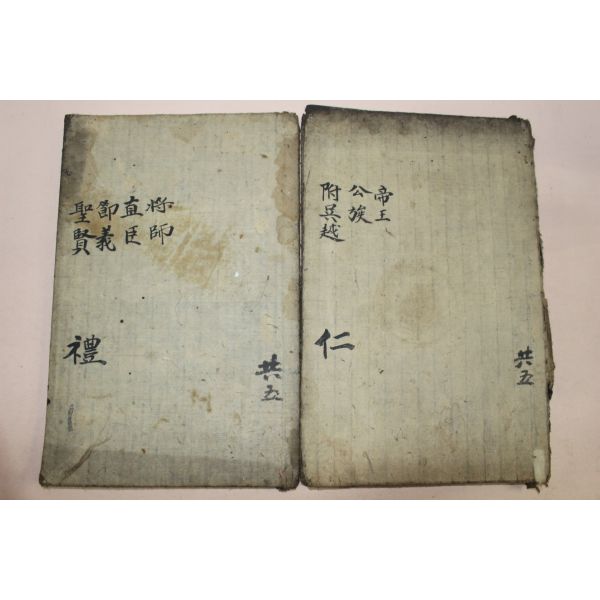 帝王
公族
附吳越
仁
共五
将師
直臣
節義
聖賢
禮
共五